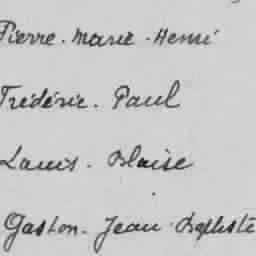 Pierre - Marie - Henri
Frédéric - Paul
Louis - Blaise
Gaston - Jean - Baptiste